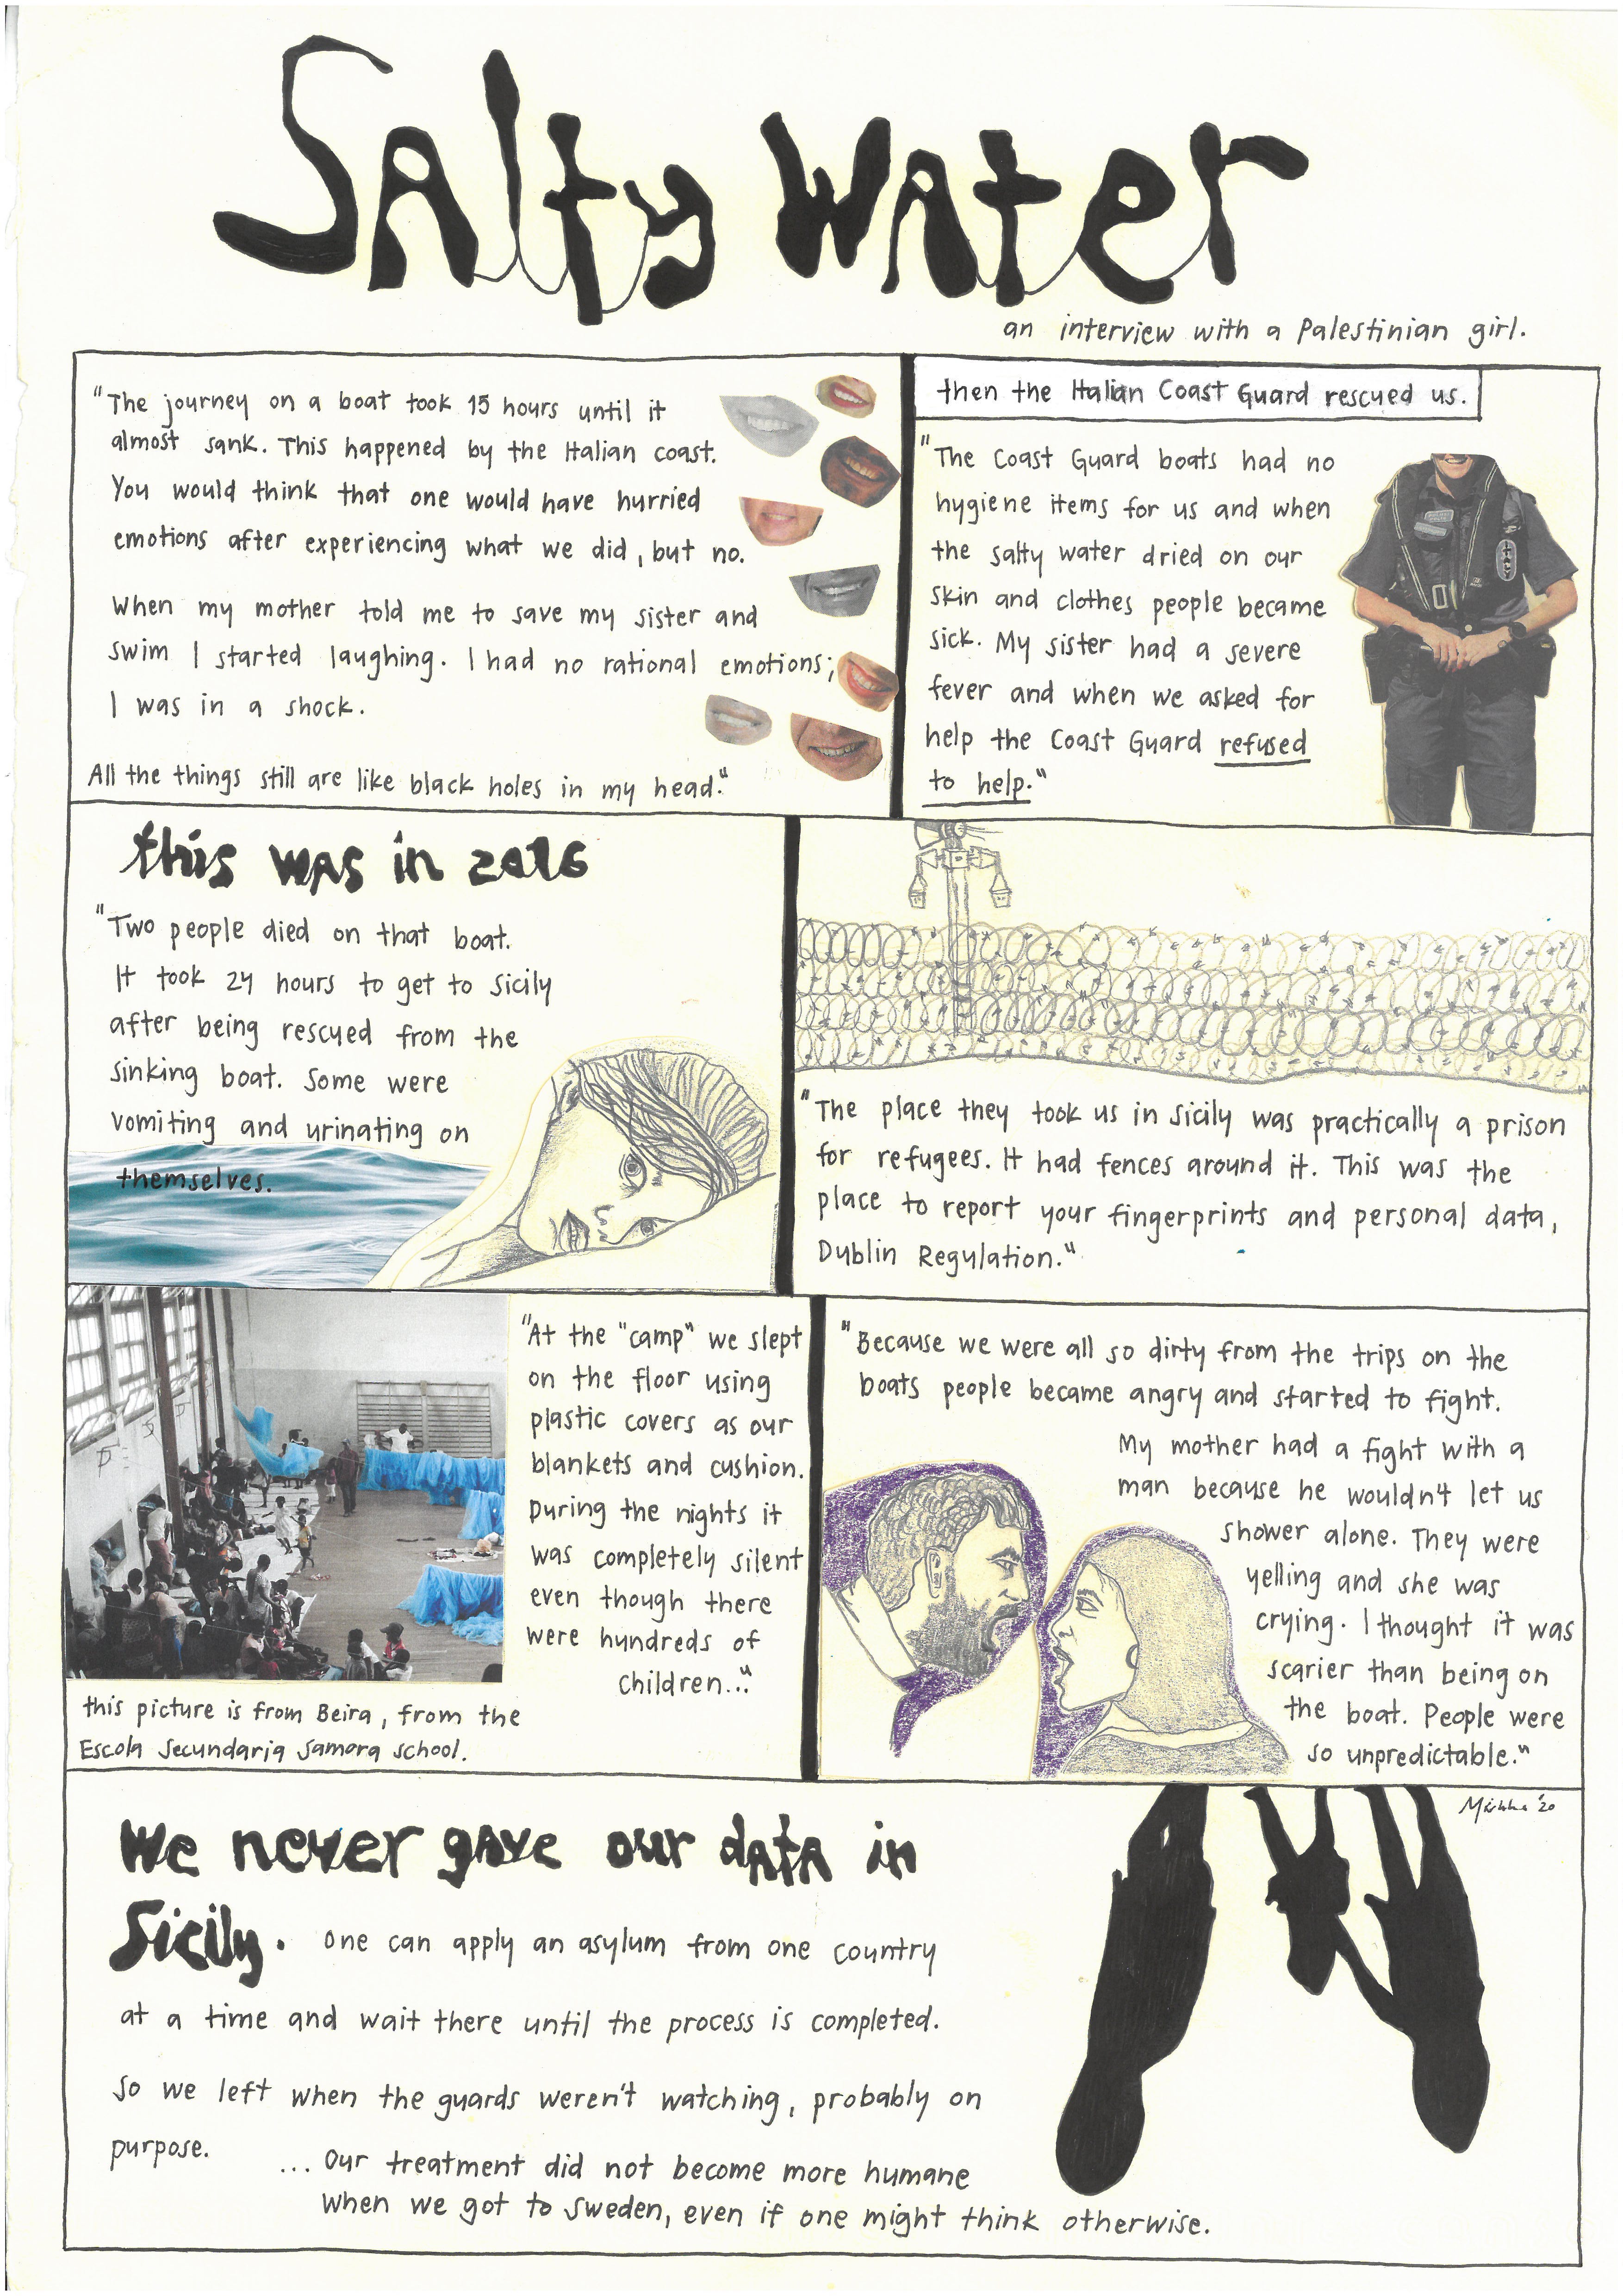 Salty Water
an interview with a Palestinian girl.
"The journey on a boat took 15 hours until it
almost sank. This happened by the Italian coast.
You would think that one would have hurried
emotions after experiencing what we did, but no.
When my mother told me to save my sister and
swim I started laughing. I had no rational emotions;
I was in a shock.
All the things still are like black holes in my head."
then the Italian Coast Guard rescued us.
"The Coast Guard boats had no
hygiene items for us and when
the salty water dried on our
skin and clothes people became
sick. My sister had a severe
fever and when we asked for
help the Coast Guard refused
to help."
ITALY
this was in 2016
"Two people died on that boat.
It took 24 hours to get to Sicily
after being rescued from the
sinking boat. Some were
vomiting and urinating on
themselves.
"The place they took us in Sicily was practically a prison
for refugees. It had fences around it. This was the
place to report your fingerprints and personal data,
Dublin Regulation."
"At the "camp" we slept
on the floor using
plastic covers as our
blankets and cushion.
During the nights it
was completely silent
even though there
were hundreds of
children..."
this picture is from Beira, from the
Escola Secundaria Samora school.
"Because we were all so dirty from the trips on the
boats people became angry and started to fight.
My mother had a fight with a
man because he wouldn't let us
shower alone. They were
yelling and she was
crying. I thought it was
scarier than being on
the boat. People were
so unpredictable."
We never gave our data in
Sicily. One can apply an asylum from one country
at a time and wait there until the process is completed.
So we left when the guards weren't watching, probably on
purpose.
... Our treatment did not become more humane
when we got to Sweden, even if one might think otherwise.
'20